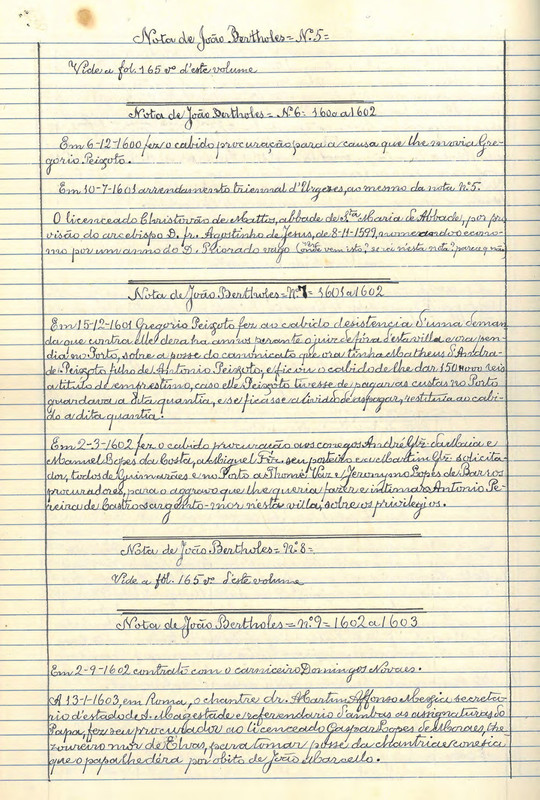 Nota de João Bertholes = N.º 5 =
Vide a fol. 165 vº d'este volume
Nota de João Bertholes = Nº 6 = 1600 a 1602
Em 6-12-1600 fez o cabido procuração para a causa que lhe movia Gre-
gorio Peixoto.
Em 10-7-1601 arrendamento triennal d'Urgezes, ao mesmo da nota nº 5.
O licenceado Christovão de Mattos, abbade de Stª Maria de Abbade, por pro
visão do arcebispo D. fr. Agostinho de Jesus, de 8-11-1599, nomeando o econo-
mo por um anno do D. Priorado vago (onde vem isto? se vi nesta nota? parece q não)
Nota de João Bertholes = Nº 7 = 1601 a 1602
Em 15-12-1601 Gregorio Peixoto fez ao cabido desistencia d'uma deman
da que contra elle dera ha annos perante o juiz de fóra desta villa e ora pen-
dia no Porto, sobre a posse do canonicato que ora tinha Matheus d'Andra-
de Peixoto filho de Antonio Peixoto, e ficou o cabido de lhe dar 150000 reis
a titulo de emprestimo, caso elle Peixoto tivesse de pagar as custas no Porto
guardava a dita quantia, e se ficasse alivido de as pagar, restituia ao cabi-
do a dita quantia.
Em 2-3-1602 fez o cabido procuração aos conegos André Glz da Maia e
Manuel Lopes da Costa, a Miguel Frz. seu porteiro e a Martim Glz solicita-
dor, todos de Guimarães e no Porto a Thomé Vaz e Jeronymo Lopes de Barros
procuradores, para o aggravo que lhe queria fazer e intimar Antonio Pe-
reira de Castro sargento-mór nesta villa, sobre os privilegios.
Nota de João Bertholes = Nº 8 =
Vide a fol. 165 vº d'este volume
Nota de João Bertholes = nº 9 = 1602 a 1603
Em 2-9-1602 contrato com o carniceiro Domingos Novaes.
A 13-1-1603, em Roma, o chantre dr. Martim Affonso Mexia secreta-
rio d'estado de S. Magestade e referendario d'ambas as assignaturas do
Papa, fez seu procurador ao licenceado Gaspar Lopes de Moraes, the-
zoureiro mór de Elvas, para tomar posse da chantria e conesia
que o papa lhe déra por obito de João Marcello.